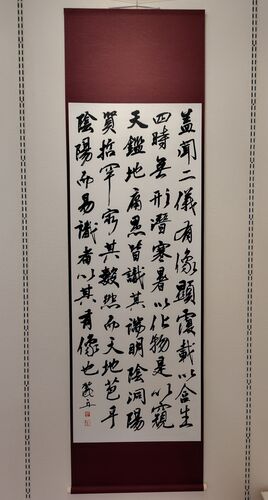 蓋聞二儀有像顯覆載以含生
四時無形潛寒暑以化物是以窺
天鑑地庸愚皆識其端明陰洞陽
賢哲罕窮其數然而天地苞乎
陰陽而易識者以其有像也